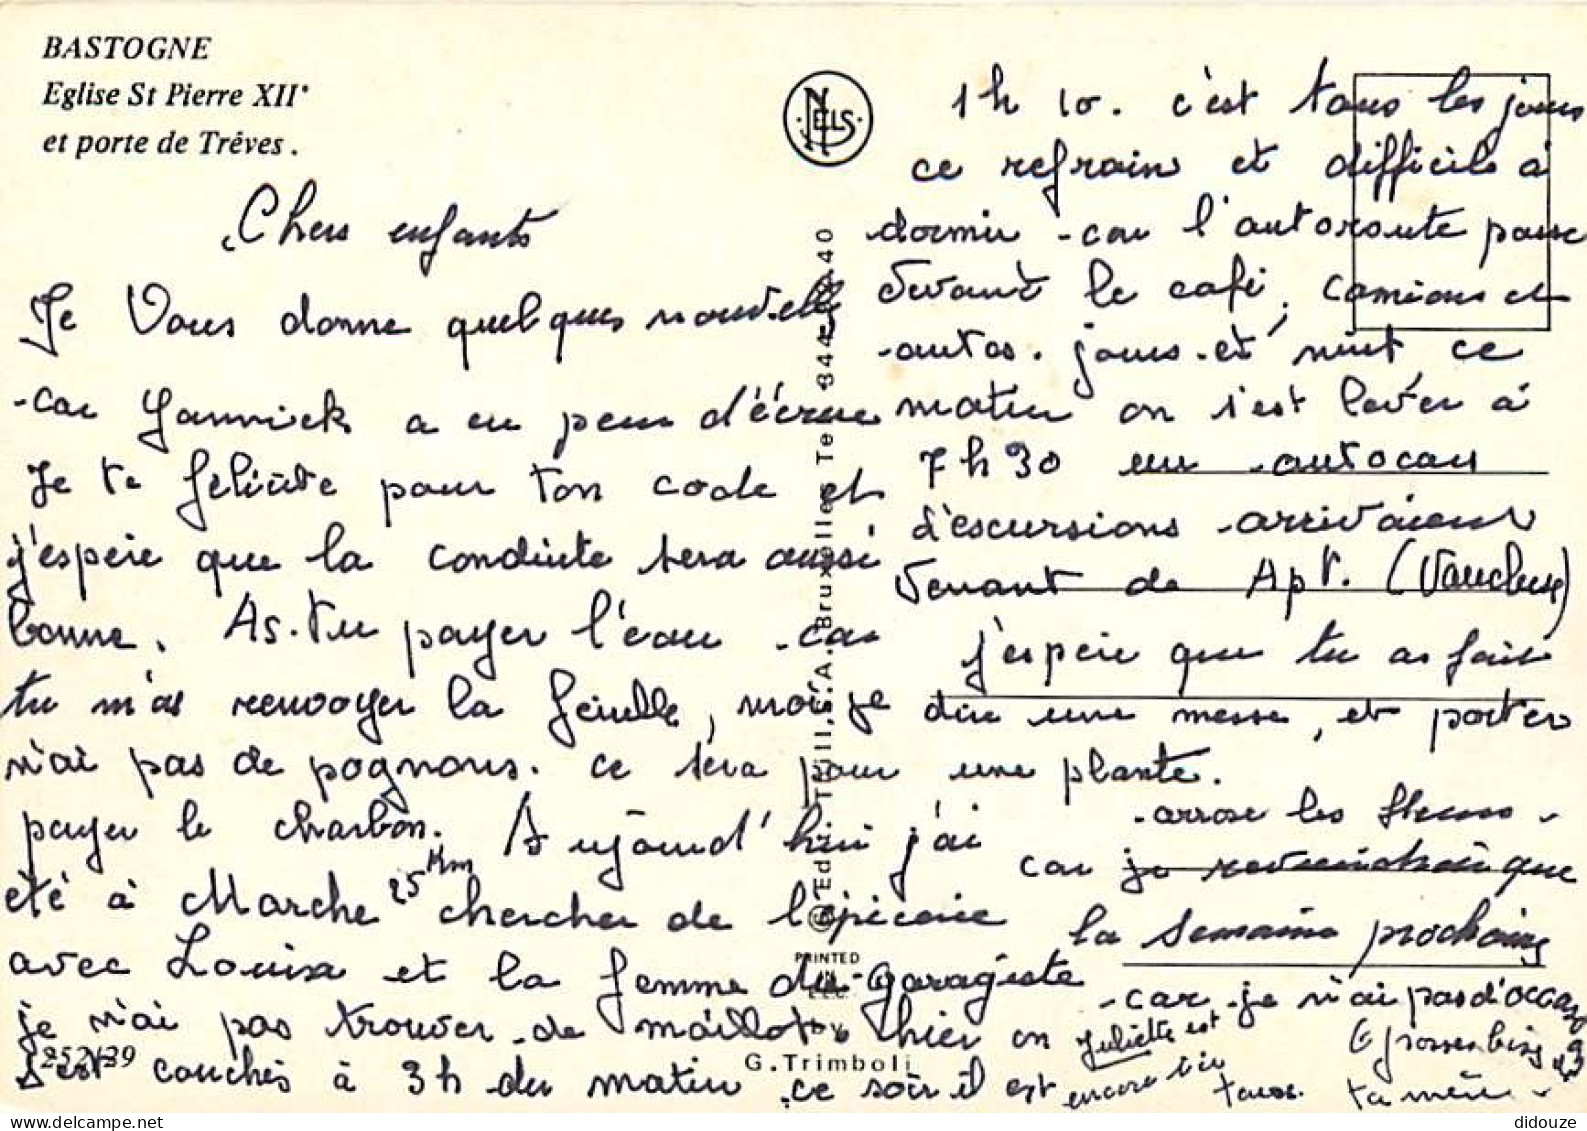 BASTOGNE
Eglise St Pierre XII°
et porte de Trêves.
NELS
Chers enfants
Je Vous donne quelques nouvelles
car Yannick a eu peur d'écrire
Je te félicite pour ton code et
j'espère que la conduite sera aussi
bonne. As-tu payer l'eau car
tu m'as renvoyer la feuille, moi je
n'ai pas de pognons. ce sera pour
payer le charbon. Aujourd'hui j'ai
été à Marche 25 Km chercher de l'épicerie
avec Louisa et la femme du garagiste
je n'ai pas trouver de maillot, hier on
s'est couchés à 3h du matin ce soir il est
1h 10. c'est tous les jours
ce refrain et difficile à
dormir car l'autoroute passe
devant le café, camions et
autos. jours et nuit ce
matin on s'est lever à
7h30 un autocar
d'escursions arrivaient
venant de Apt. (Vaucluse)
j'espère que tu as fait
dire une messe, et porter
une plante.
arrose les fleurs
car je reviendrai que
la semaine prochaine
car je n'ai pas d'occas
Grosses bises
ta mère
Juliette est
encore ici
PRINTED
IN
E.E.C.
by
G. Trimboli
252/29
didouze